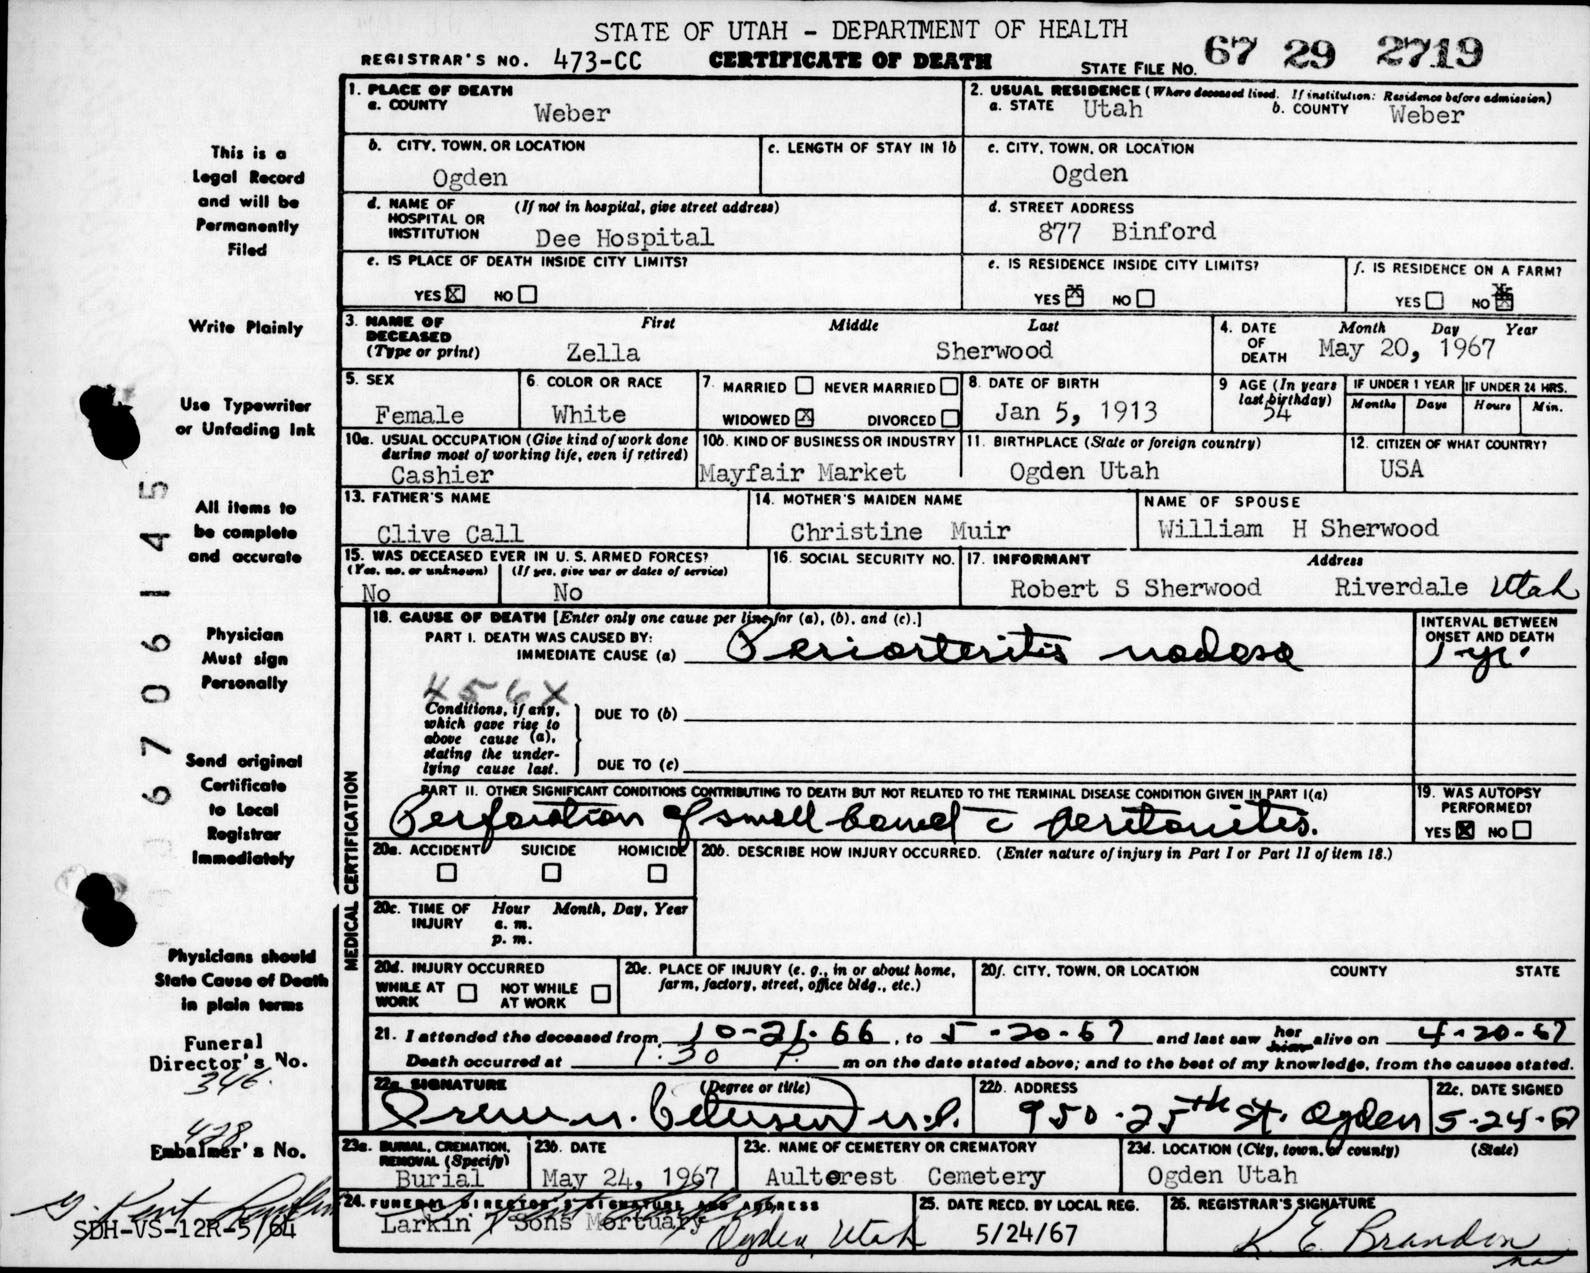 STATE OF UTAH - DEPARTMENT OF HEALTH
REGISTRAR'S NO. 473-CC CERTIFICATE OF DEATH STATE FILE NO. 67 29 2719
This is a
Legal Record
and will be
Permanently
Filed
Write Plainly
Use Typewriter
or Unfading Ink
All items to
be complete
and accurate
Physician
Must sign
Personally
Send original
Certificate
to Local
Registrar
Immediately
Physicians should
State Cause of Death
in plain terms
Funeral
Director's No.
346.
428
Embalmer's No.
SDH-VS-12R-5/64
6706145
1. PLACE OF DEATH
a. COUNTY Weber
2. USUAL RESIDENCE (Where deceased lived. If institution: Residence before admission)
a. STATE Utah b. COUNTY Weber
b. CITY, TOWN, OR LOCATION
Ogden
c. LENGTH OF STAY IN 1b
c. CITY, TOWN, OR LOCATION
Ogden
d. NAME OF HOSPITAL OR INSTITUTION (If not in hospital, give street address)
Dee Hospital
d. STREET ADDRESS
877 Binford
e. IS PLACE OF DEATH INSIDE CITY LIMITS?
YES X NO
e. IS RESIDENCE INSIDE CITY LIMITS?
YES X NO
f. IS RESIDENCE ON A FARM?
YES NO X
3. NAME OF DECEASED (Type or print) First Middle Last
Zella Sherwood
4. DATE OF DEATH Month Day Year
May 20, 1967
5. SEX
Female
6. COLOR OR RACE
White
7. MARRIED NEVER MARRIED
WIDOWED X DIVORCED
8. DATE OF BIRTH
Jan 5, 1913
9 AGE (In years last birthday)
54
IF UNDER 1 YEAR IF UNDER 24 HRS.
Months Days Hours Min.
10a. USUAL OCCUPATION (Give kind of work done during most of working life, even if retired)
Cashier
10b. KIND OF BUSINESS OR INDUSTRY
Mayfair Market
11. BIRTHPLACE (State or foreign country)
Ogden Utah
12. CITIZEN OF WHAT COUNTRY?
USA
13. FATHER'S NAME
Clive Call
14. MOTHER'S MAIDEN NAME
Christine Muir
NAME OF SPOUSE
William H Sherwood
15. WAS DECEASED EVER IN U.S. ARMED FORCES?
(Yes, no, or unknown) (If yes, give war or dates of service)
No No
16. SOCIAL SECURITY NO.
17. INFORMANT Address
Robert S Sherwood Riverdale Utah
MEDICAL CERTIFICATION
18. CAUSE OF DEATH [Enter only one cause per line for (a), (b), and (c).]
PART I. DEATH WAS CAUSED BY:
IMMEDIATE CAUSE (a) Periarteritis nodosa
INTERVAL BETWEEN ONSET AND DEATH
1 yr.
456X
Conditions, if any, which gave rise to above cause (a), stating the underlying cause last.
DUE TO (b)
DUE TO (c)
PART II. OTHER SIGNIFICANT CONDITIONS CONTRIBUTING TO DEATH BUT NOT RELATED TO THE TERMINAL DISEASE CONDITION GIVEN IN PART I(a)
Perforation of small bowel c peritonitis.
19. WAS AUTOPSY PERFORMED?
YES X NO
20a. ACCIDENT SUICIDE HOMICIDE
20b. DESCRIBE HOW INJURY OCCURRED. (Enter nature of injury in Part I or Part II of item 18.)
20c. TIME OF INJURY Hour Month, Day, Year
a. m.
p. m.
20d. INJURY OCCURRED
WHILE AT WORK NOT WHILE AT WORK
20e. PLACE OF INJURY (e. g., in or about home, farm, factory, street, office bldg., etc.)
20f. CITY, TOWN, OR LOCATION COUNTY STATE
21. I attended the deceased from 10-21-66, to 5-20-67 and last saw her him alive on 4-20-67
Death occurred at 1:30 P. m on the date stated above; and to the best of my knowledge, from the causes stated.
22a. SIGNATURE (Degree or title)
M.D.
22b. ADDRESS
950-25th St. Ogden
22c. DATE SIGNED
5-24-67
23a. BURIAL, CREMATION, REMOVAL (Specify)
Burial
23b. DATE
May 24, 1967
23c. NAME OF CEMETERY OR CREMATORY
Aultorest Cemetery
23d. LOCATION (City, town, or county) (State)
Ogden Utah
24. FUNERAL DIRECTOR'S SIGNATURE AND ADDRESS
Larkin & Sons Mortuary Ogden, Utah
25. DATE RECD. BY LOCAL REG.
5/24/67
26. REGISTRAR'S SIGNATURE
K. E. Brandon